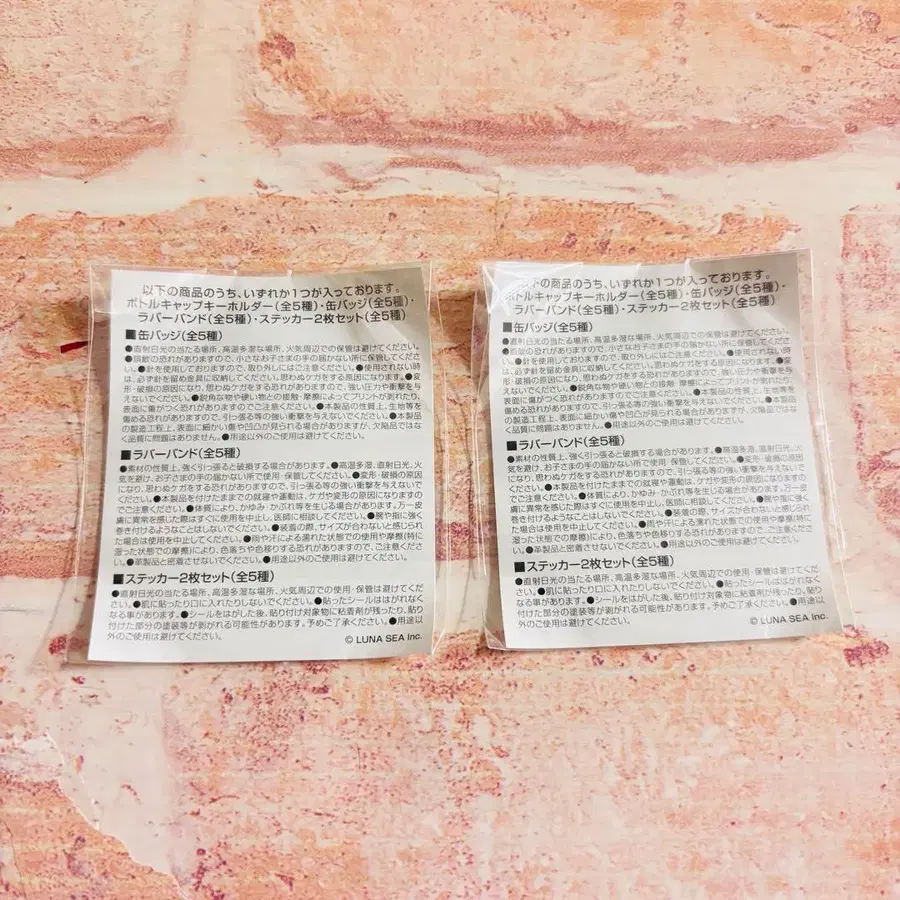 以下の商品のうち、いずれか1つが入っております。
ボトルキャップキーホルダー(全5種)・缶バッジ(全5種)・
ラバーバンド(全5種)・ステッカー2枚セット(全5種)
■缶バッジ(全5種)
●直射日光の当たる場所、高温多湿な場所、火気周辺での保管は避けてください。
●誤飲の恐れがありますので、小さなお子さまの手の届かない所に保管してくださ
い。●針を使用しておりますので、取り外しにはご注意ください。●使用されない時
は、必ず針を留め金具に収納してください。思わぬケガをする原因になります。●変
形・破損の原因になり、思わぬケガをする恐れがありますので、強い圧力や衝撃を与
えないでください。●鋭角な物や硬い物との接触・摩擦によってプリントが剥れたり、
表面に傷がつく恐れがありますのでご注意ください。●本製品の性質上、生地等を
傷める恐れがありますので、引っ張る等の強い衝撃を与えないでください。●本製品
の製造工程上、表面に細かい傷や凹凸が見られる場合がありますが、欠陥品ではな
く品質に問題はありません。●用途以外のご使用は避けてください。
■ラバーバンド(全5種)
●素材の性質上、強く引っ張ると破損する場合があります。●高温多湿、直射日光、火
気を避け、お子さまの手の届かない所で使用・保管してください。●変形・破損の原因
になり、思わぬケガをする恐れがありますので、引っ張る等の強い衝撃を与えないで
ください。●本製品を付けたままでの就寝や運動は、ケガや変形の原因になりますの
でご注意ください。●体質により、かゆみ・かぶれ等を生じる場合があります。万一皮
膚に異常を感じた際はすぐに使用を中止し、医師に相談してください。●腕や指に強く
巻き付けるようなことはしないでください。●装着の際、サイズが合わないと感じられ
た場合は使用を中止してください。●雨や汗による濡れた状態での使用や摩擦(特に
湿った状態での摩擦)により、色落ちや色移りする恐れがありますので、ご注意くださ
い。●革製品と密着させないでください。●用途以外のご使用は避けてください。
■ステッカー2枚セット(全5種)
●直射日光の当たる場所、高温多湿な場所、火気周辺での使用・保管は避けてくださ
い。●肌に貼ったり口に入れたりしないでください。●貼ったシールははがれなく
なる事があります。●シールをはがした後、貼り付け対象物に粘着剤が残ったり、貼り
付けた部分の塗装等が剥がれる可能性があります。予めご了承ください。●用途以
外のご使用は避けてください。
© LUNA SEA Inc.
以下の商品のうち、いずれか1つが入っております。
ボトルキャップキーホルダー(全5種)・缶バッジ(全5種)・
ラバーバンド(全5種)・ステッカー2枚セット(全5種)
■缶バッジ(全5種)
●直射日光の当たる場所、高温多湿な場所、火気周辺での保管は避けてください。
●誤飲の恐れがありますので、小さなお子さまの手の届かない所に保管してくださ
い。●針を使用しておりますので、取り外しにはご注意ください。●使用されない時
は、必ず針を留め金具に収納してください。思わぬケガをする原因になります。●変
形・破損の原因になり、思わぬケガをする恐れがありますので、強い圧力や衝撃を与
えないでください。●鋭角な物や硬い物との接触・摩擦によってプリントが剥れたり、
表面に傷がつく恐れがありますのでご注意ください。●本製品の性質上、生地等を
傷める恐れがありますので、引っ張る等の強い衝撃を与えないでください。●本製品
の製造工程上、表面に細かい傷や凹凸が見られる場合がありますが、欠陥品ではな
く品質に問題はありません。●用途以外のご使用は避けてください。
■ラバーバンド(全5種)
●素材の性質上、強く引っ張ると破損する場合があります。●高温多湿、直射日光、火
気を避け、お子さまの手の届かない所で使用・保管してください。●変形・破損の原因
になり、思わぬケガをする恐れがありますので、引っ張る等の強い衝撃を与えないで
ください。●本製品を付けたままでの就寝や運動は、ケガや変形の原因になりますの
でご注意ください。●体質により、かゆみ・かぶれ等を生じる場合があります。万一皮
膚に異常を感じた際はすぐに使用を中止し、医師に相談してください。●腕や指に強く
巻き付けるようなことはしないでください。●装着の際、サイズが合わないと感じられ
た場合は使用を中止してください。●雨や汗による濡れた状態での使用や摩擦(特に
湿った状態での摩擦)により、色落ちや色移りする恐れがありますので、ご注意くださ
い。●革製品と密着させないでください。●用途以外のご使用は避けてください。
■ステッカー2枚セット(全5種)
●直射日光の当たる場所、高温多湿な場所、火気周辺での使用・保管は避けてくださ
い。●肌に貼ったり口に入れたりしないでください。●貼ったシールははがれなく
なる事があります。●シールをはがした後、貼り付け対象物に粘着剤が残ったり、貼り
付けた部分の塗装等が剥がれる可能性があります。予めご了承ください。●用途以
外のご使用は避けてください。
© LUNA SEA Inc.